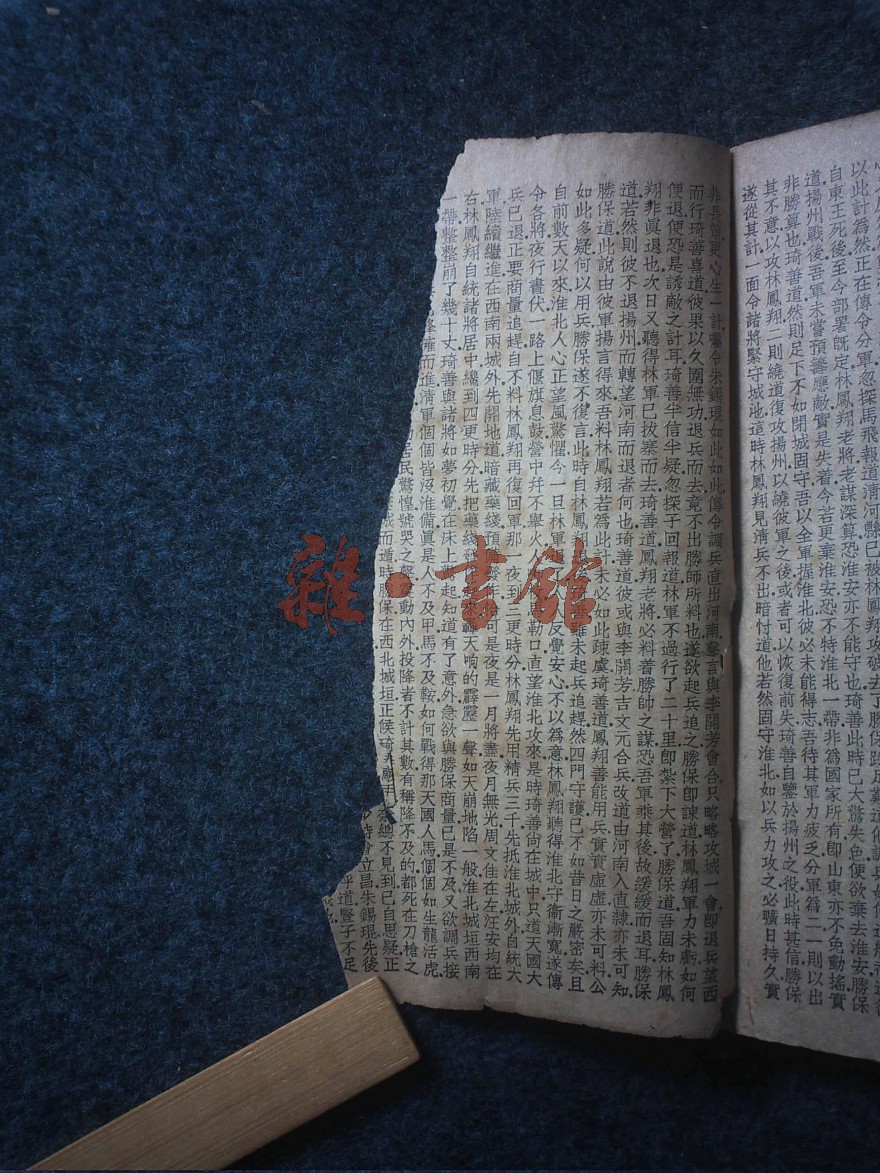 以此計爲然正在傳令分軍忽探馬飛報道清河縣已被林鳳翔攻破去了
自東王死後至今部署旣定林鳳翔老將老謀深算恐淮安亦不能守也琦善此時已大驚失色便欲棄去淮安勝保
道揚州戰後吾軍未嘗預籌應敵實是失着今若更棄淮安恐不特淮北一帶非爲國家所有卽山東亦不免動搖實
非勝算也琦善道然則足下不如閉城固守吾以全軍握淮北彼必未能得志吾待其軍力疲乏分軍爲二一則以出
其不意以攻林鳳翔二則繞道復攻揚州以繞彼軍之後或者可以恢復前失琦善自鑒於揚州之役此時甚信勝保
遂從其計一面令諸將緊守城池這時林鳳翔見淸兵不出暗忖道他若然固守淮北如以兵力攻之必曠日持久實
非良策更心生一計囑令朱錫琨如此如此傳令調兵直出河南聲言與李開芳會合只略略攻城一會卽退兵望西
而行琦善喜道彼果以久圍無功退兵而去竟不出勝師所料也遂欲起兵追之勝保卽諫道林鳳翔軍力未虧如何
便退便恐是誘敵之計耳琦善半信半疑忽探子回報道林軍不過行了二十里卽紮下大營了勝保道吾固知林鳳
翔非眞退也次日又聽得林軍已拔寨而去琦善道鳳翔老將必料着勝帥之謀恐吾軍乘其後故緩緩而退耳勝保
道若然則彼不退揚州而轉望河南而退者何也琦善道彼或與李開芳吉文元合兵改道由河南入直隸亦未可知
勝保道此說由彼軍揚言得來吾料林鳳翔若爲此計未必如此疎虞琦善道鳳翔善能用兵實實虛虛亦未可料公
如此多疑何以用兵勝保遂不復言此時自林鳳 雖未起兵追趕然四門守護已不如昔日之嚴密矣且
自前數天以來淮北人心正望風驚懼今一旦林軍 反覺安心不以爲意林鳳翔聽得淮北守衞漸寬遂傳
令各將夜行晝伏一路上偃旗息鼓營中幷不舉火人 勒口直望淮北攻來是時琦善尙在城中只道天國大
兵已退正要商量追趕自不料林鳳翔再復回軍那一夜到二更時分林鳳翔先用精兵三千先抵淮北城外自統大
軍陸續繼進在西南兩城外先開地道暗藏藥綫預 發炸 可是夜是一月將盡夜月無光周文佳在左汪安均在
右林鳳翔自統諸將居中纔到四更時分先把藥綫 轟天响的霹靂一聲如天崩地陷一般淮北城垣西南
一帶整整崩了幾十丈琦善與諸將如夢初覺在床上 起知道有了意外急欲與勝保商量已是不及又欲調兵接
擁而進淸軍個個皆沒准備眞是人不及甲馬不及鞍如何戰得那天國人馬個個如生龍活虎
居民驚惶號哭之聲 動內外投降者不計其數有稱降不及的都死在刀槍之
而遁時勝保在西北城垣正候琦 總不見到已自思疑正
時會立昌朱錫琨先後
呼道豎子不足